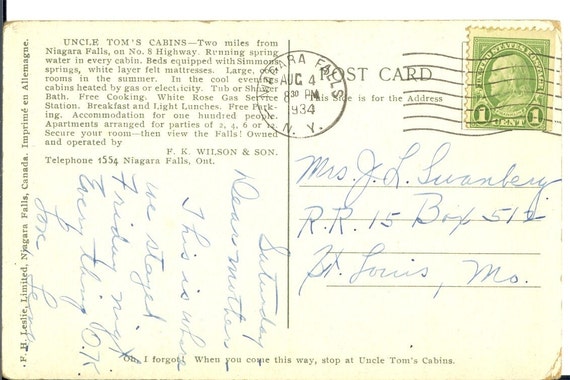 UNCLE TOM'S CABINS—Two miles from
Niagara Falls, on No. 8 Highway. Running spring
water in every cabin. Beds equipped with Simmons
springs, white layer felt mattresses. Large, cool
rooms in the summer. In the cool evenings
cabins heated by gas or electricity. Tub or Shower
Bath. Free Cooking. White Rose Gas Service
Station. Breakfast and Light Lunches. Free Park-
ing. Accommodation for one hundred people.
Apartments arranged for parties of 2, 4, 6 or 12.
Secure your room—then view the Falls! Owned
and operated by
F. K. WILSON & SON.
Telephone 1554 Niagara Falls, Ont.
Saturday
Dear mother
This is where
we stayed
Friday night
Every thing O.K.
Love
F. H. Leslie, Limited, Niagara Falls, Canada. Imprimé en Allemagne.
NIAGARA FALLS
AUG 4
8 30 PM
1934
N. Y.
POST CARD
This Side is for the Address
UNITED STATES POSTAGE
1 1
CENT
Mrs. J. L. Swanberg
R.R. 15 Box 512
St. Louis, Mo.
Oh, I forgot! When you come this way, stop at Uncle Tom's Cabins.